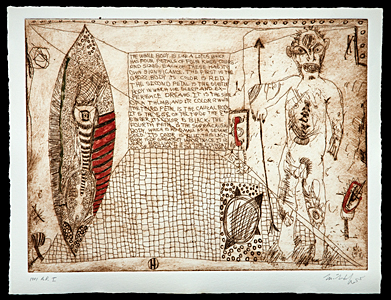 THE WHOLE BODY IS LIKE A LOTUS WHICH
HAS FOUR PETALS OF FOUR KINDS, COLORS
AND SIZES. EACH OF THESE HAS ITS
OWN SIGNIFICANCE. THE FIRST IS THE
GROSS BODY. ITS COLOR IS RED.
THE SECOND PETAL IS THE SUBTLE
BODY IN WHICH WE SLEEP AND EX-
PERIENCE DREAMS. IT IS THE SIZE
OF A THUMB, AND ITS COLOR IS WHITE
THE THIRD PETAL IS THE CAUSAL BODY
IT IS THE SIZE OF THE TIP OF THE
ITS COLOR IS BLACK. THE
FOURTH PETAL IS THE SUPRACAUSAL
BODY WHICH IS AS SMALL AS A SESAME